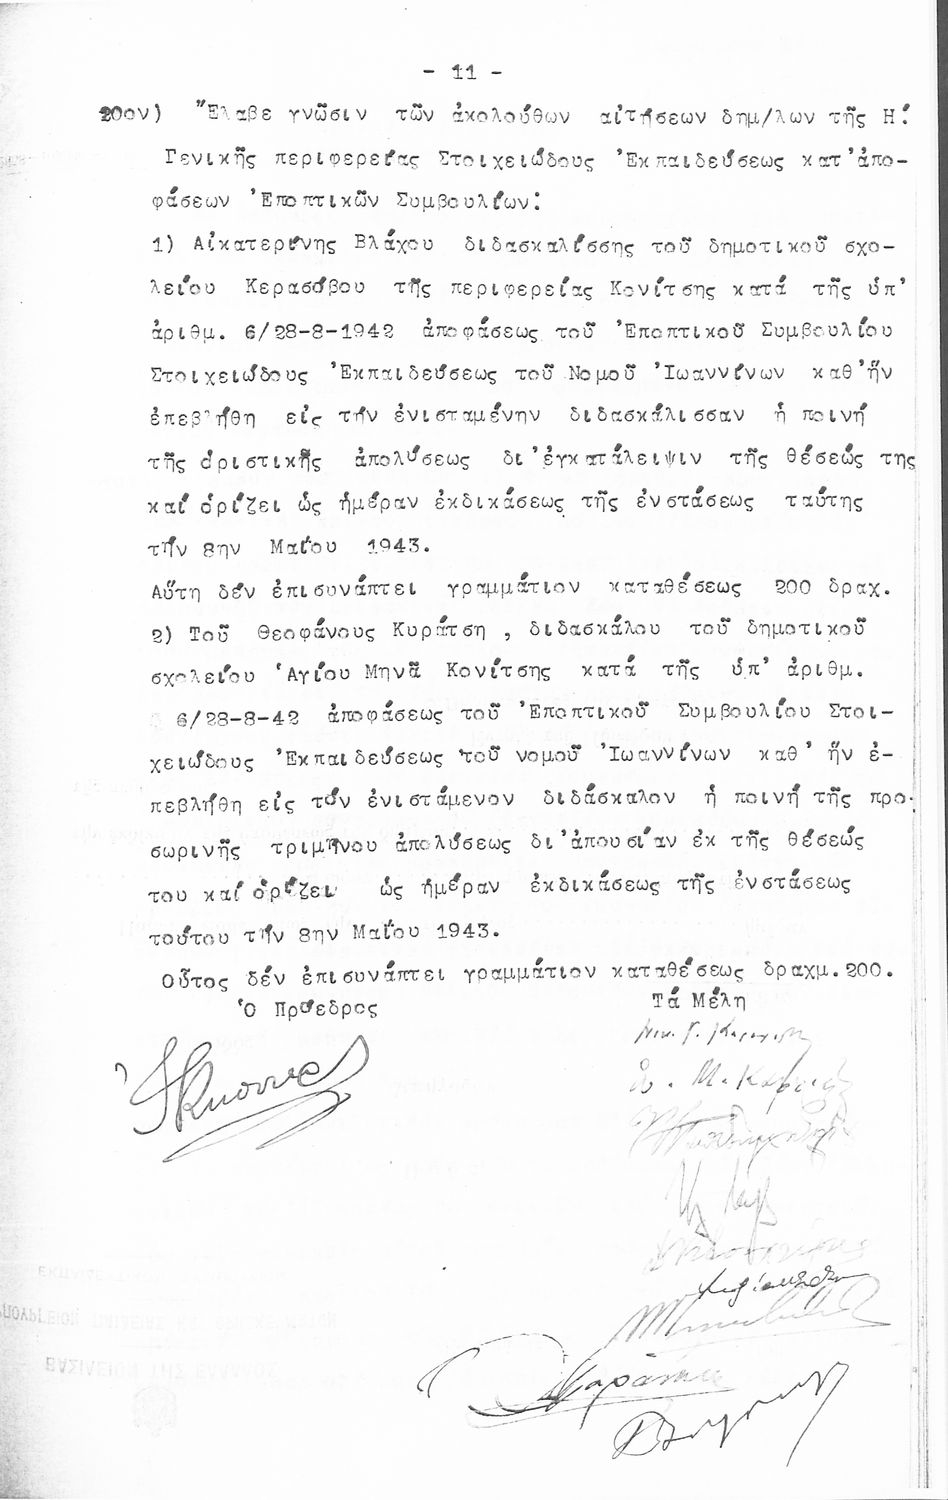 - 11 -
20ον) Ἔλαβε γνῶσιν τῶν ἀκολούθων αἰτήσεων δημ/λων τῆς Η!
Γενικῆς περιφερείας Στοιχειώδους Ἐκπαιδεύσεως κατ' ἀπο-
φάσεων Ἐποπτικῶν Συμβουλίων:
1) Αἰκατερίνης Βλάχου διδασκαλίσσης τοῦ δημοτικοῦ σχο-
λείου Κερασόβου τῆς περιφερείας Κονίτσης κατά τῆς ὑπ'
ἀριθμ. 6/28-8-1942 ἀποφάσεως τοῦ Ἐποπτικοῦ Συμβουλίου
Στοιχειώδους Ἐκπαιδεύσεως τοῦ Νομοῦ Ἰωαννίνων καθ' ἥν
ἐπεβλήθη εἰς τήν ἐνισταμένην διδασκάλισσαν ἡ ποινή
τῆς ὁριστικῆς ἀπολύσεως δι' ἐγκατάλειψιν τῆς θέσεώς της
καί ὁρίζει ὡς ἡμέραν ἐκδικάσεως τῆς ἐνστάσεως ταύτης
τήν 8ην Μαΐου 1943.
Αὕτη δέν ἐπισυνάπτει γραμμάτιον καταθέσεως 200 δραχ.
2) Τοῦ Θεοφάνους Κυράτση , διδασκάλου τοῦ δημοτικοῦ
σχολείου Ἁγίου Μηνᾶ Κονίτσης κατά τῆς ὑπ' ἀριθμ.
6/28-8-42 ἀποφάσεως τοῦ Ἐποπτικοῦ Συμβουλίου Στοι-
χειώδους Ἐκπαιδεύσεως τοῦ νομοῦ Ἰωαννίνων καθ' ἥν ἐ-
πεβλήθη εἰς τόν ἐνιστάμενον διδάσκαλον ἡ ποινή τῆς προ-
σωρινῆς τριμήνου ἀπολύσεως δι' ἀπουσίαν ἐκ τῆς θέσεώς
του καί ὁρίζει ὡς ἡμέραν ἐκδικάσεως τῆς ἐνστάσεως
τούτου τήν 8ην Μαΐου 1943.
Οὗτος δέν ἐπισυνάπτει γραμμάτιον καταθέσεως δραχμ. 200.
Ὁ Πρόεδρος Τά Μέλη